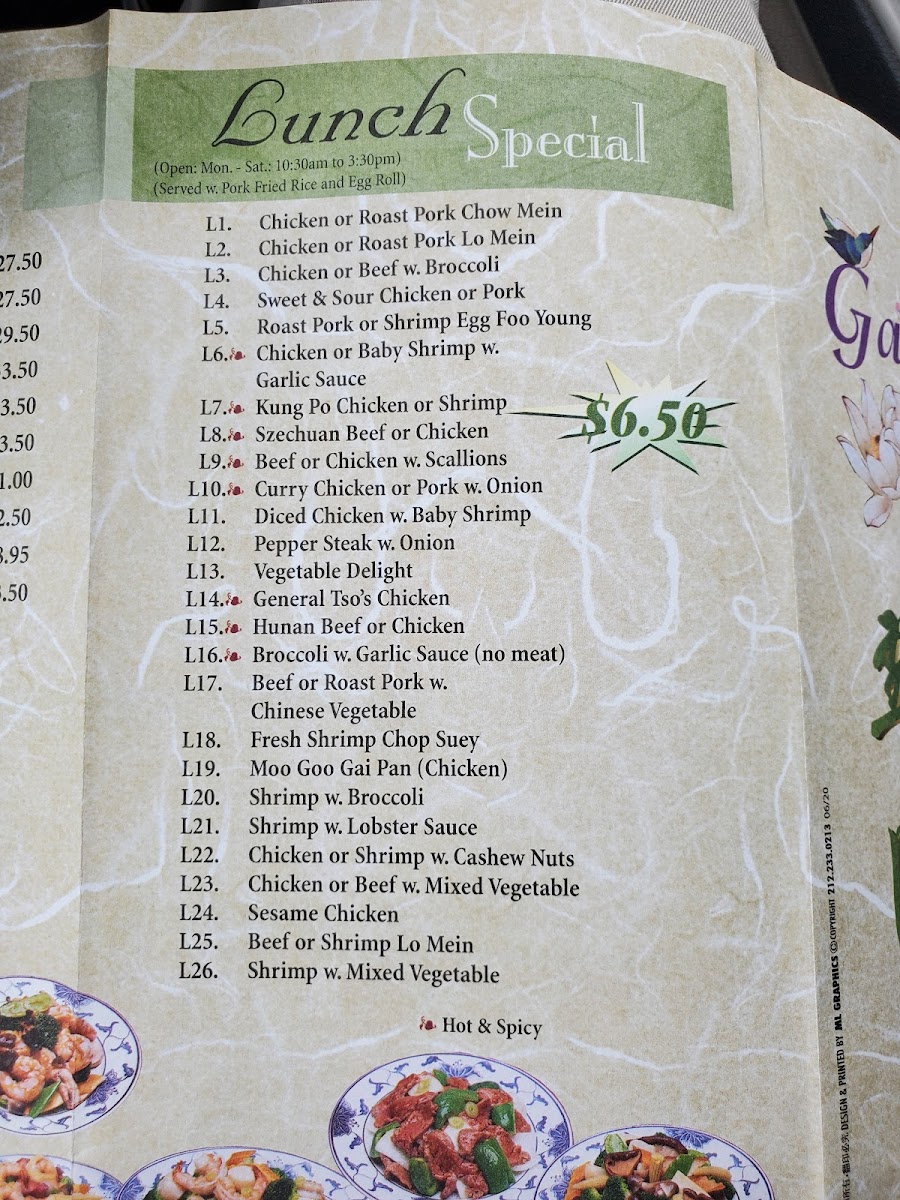 Lunch Special
(Open: Mon. - Sat.: 10:30am to 3:30pm)
(Served w. Pork Fried Rice and Egg Roll)
L1. Chicken or Roast Pork Chow Mein
L2. Chicken or Roast Pork Lo Mein
L3. Chicken or Beef w. Broccoli
L4. Sweet & Sour Chicken or Pork
L5. Roast Pork or Shrimp Egg Foo Young
L6. Chicken or Baby Shrimp w.
Garlic Sauce
L7. Kung Po Chicken or Shrimp
L8. Szechuan Beef or Chicken
L9. Beef or Chicken w. Scallions
L10. Curry Chicken or Pork w. Onion
L11. Diced Chicken w. Baby Shrimp
L12. Pepper Steak w. Onion
L13. Vegetable Delight
L14. General Tso's Chicken
L15. Hunan Beef or Chicken
L16. Broccoli w. Garlic Sauce (no meat)
L17. Beef or Roast Pork w.
Chinese Vegetable
L18. Fresh Shrimp Chop Suey
L19. Moo Goo Gai Pan (Chicken)
L20. Shrimp w. Broccoli
L21. Shrimp w. Lobster Sauce
L22. Chicken or Shrimp w. Cashew Nuts
L23. Chicken or Beef w. Mixed Vegetable
L24. Sesame Chicken
L25. Beef or Shrimp Lo Mein
L26. Shrimp w. Mixed Vegetable
Hot & Spicy
$6.50
27.50
27.50
29.50
3.50
3.50
3.50
1.00
2.50
8.95
.50
Ga
DESIGN & PRINTED BY ML GRAPHICS © COPYRIGHT 212.233.0213 06/20